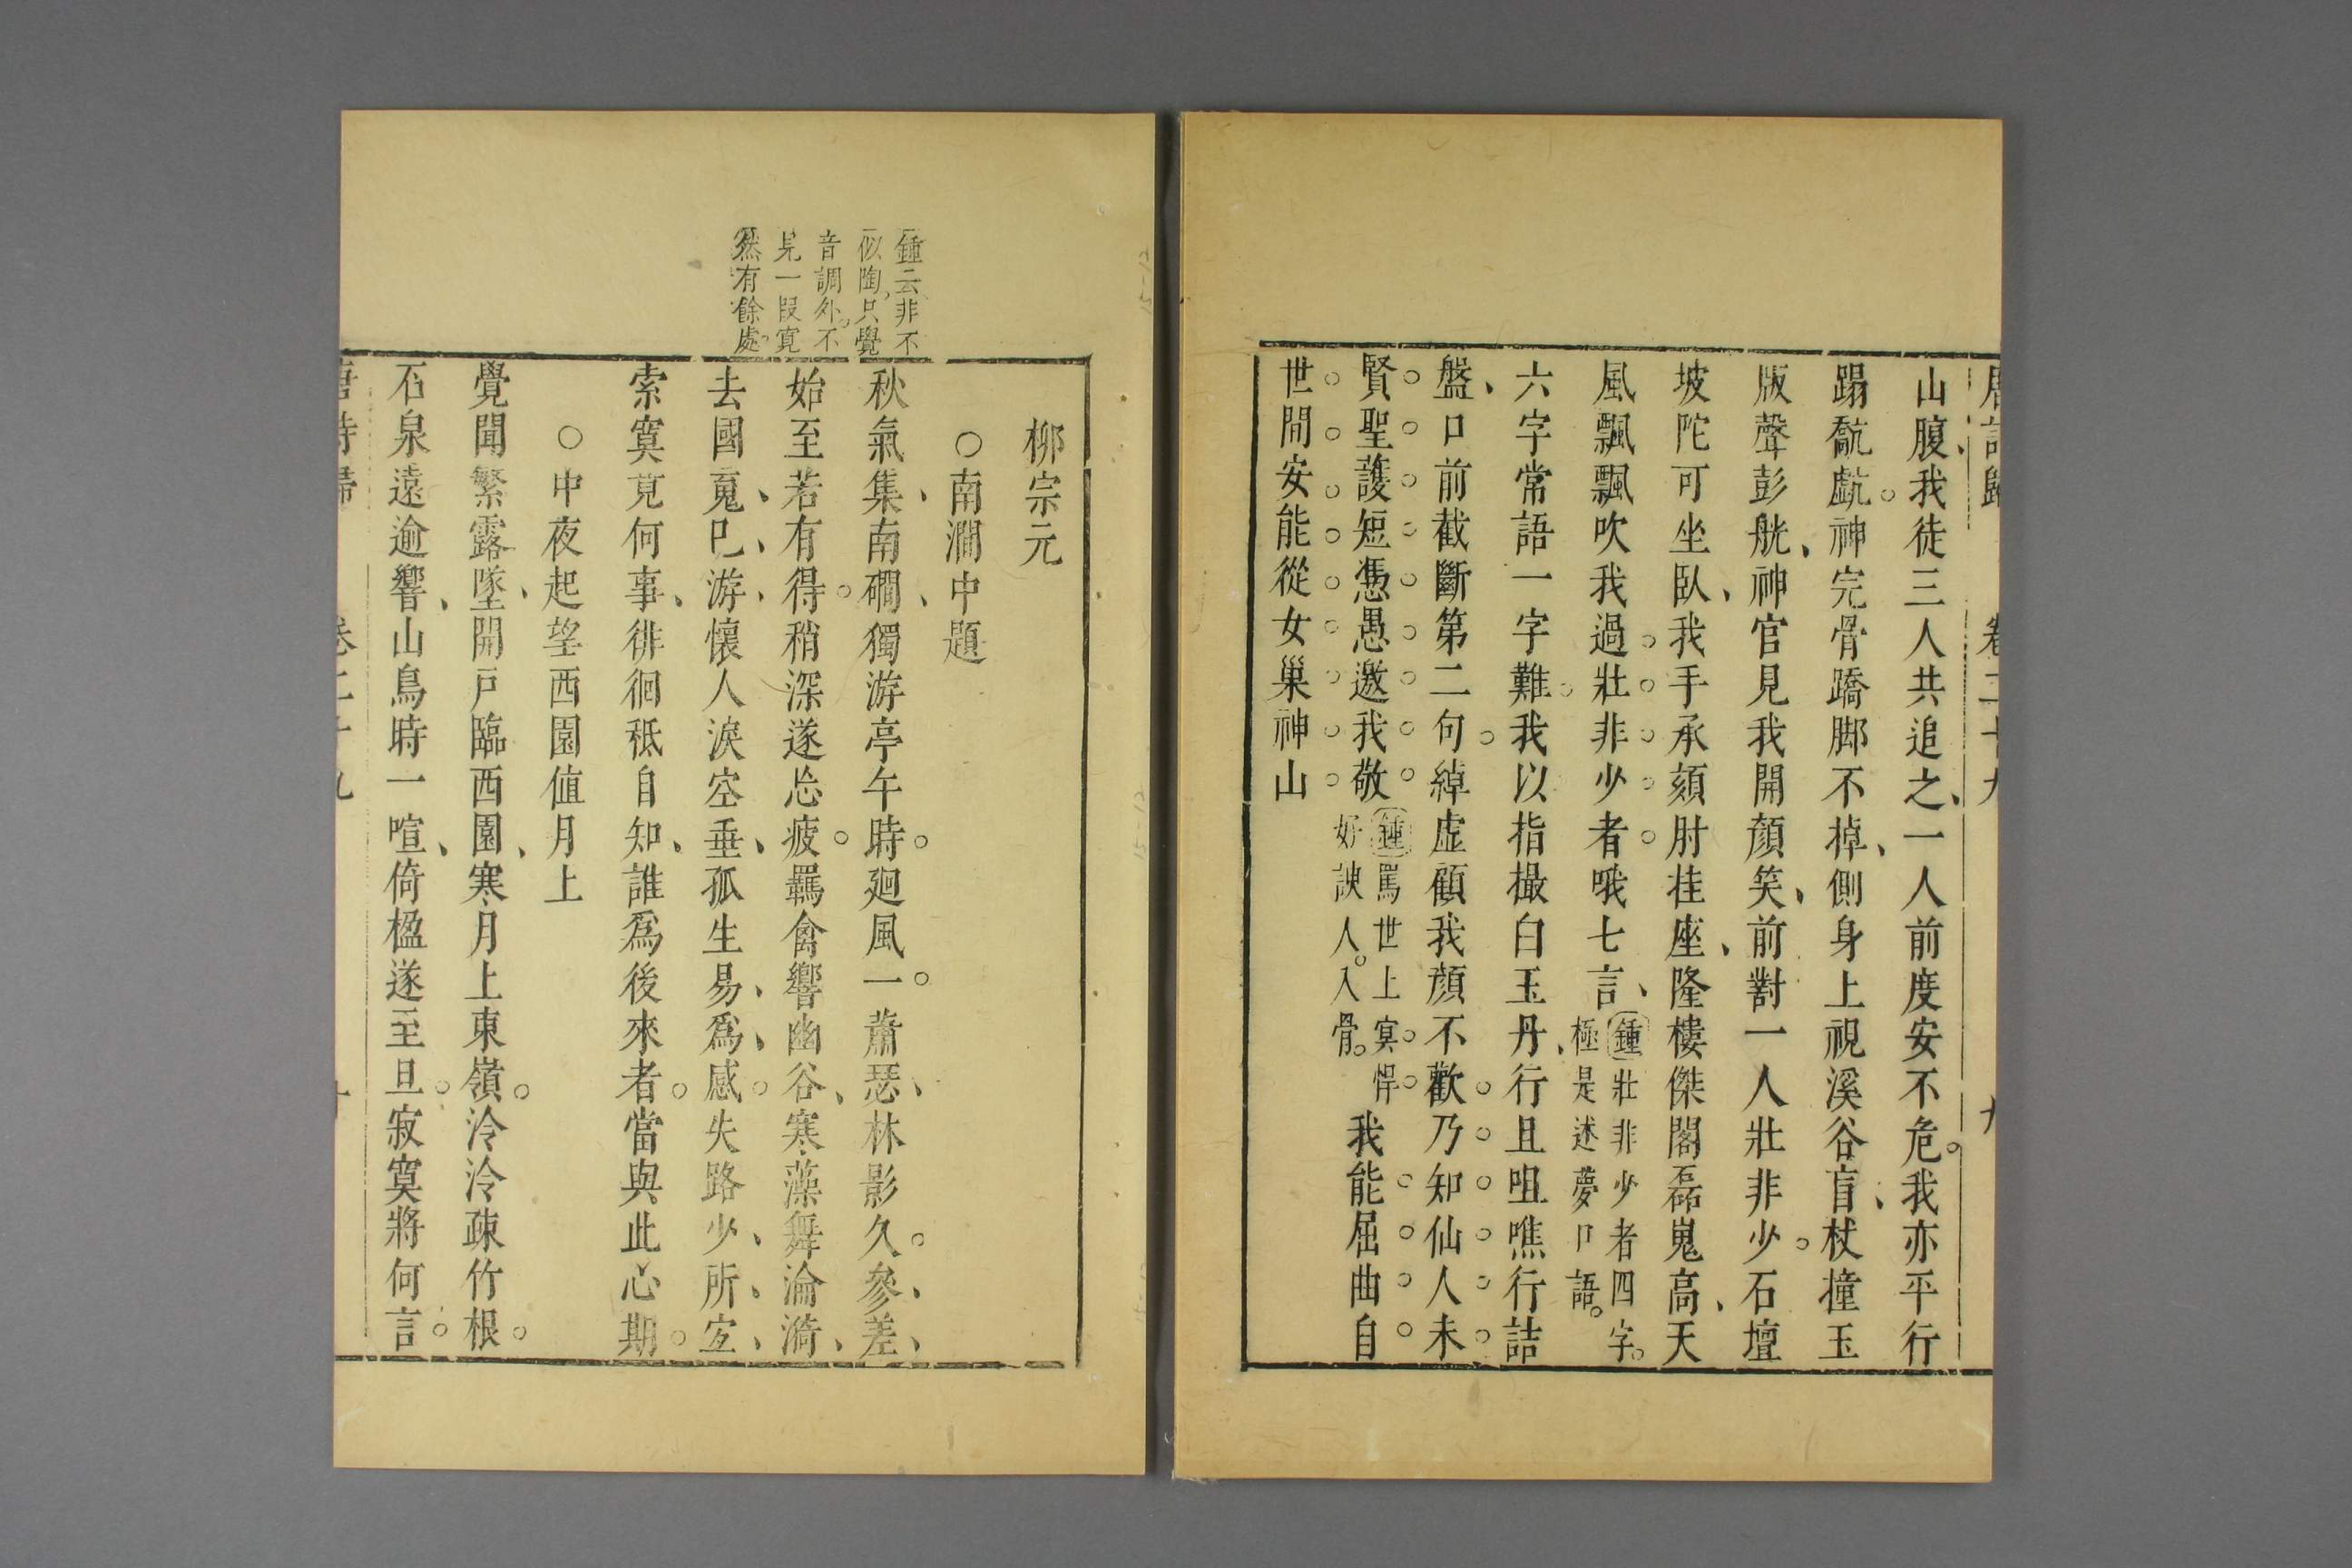 唐詩歸 卷二十九 九
山腹我徒三人共追之一人前度安不危我亦平行
蹋𩨗𩨭神完骨蹻脚不掉側身上視溪谷盲杖撞玉
版聲彭觥神官見我開顏笑前對一人壯非少石壇
坡陀可坐臥我手承頦肘拄座隆樓傑閣磊嵬高天
風飄飄吹我過壯非少者哦七言
鍾壯非少者四字
極是述夢口語
六字常語一字難我以指撮白玉丹行且咀噍行詰
盤口前截斷第二句綽虛顧我顏不歡乃知仙人未
賢聖護短憑愚邀我敬
鍾罵世上冥悍
好諛人入骨
我能屈曲自
世間安能從女巢神山
柳宗元
○南澗中題
鍾云非不
似陶只覺
音調外不
見一段寬
然有餘處
秋氣集南磵獨游亭午時廻風一蕭瑟林影久參差
始至若有得稍深遂忘疲羈禽響幽谷寒藻舞淪漪
去國䰟已游懷人淚空垂孤生易爲感失路少所宐
索寞竟何事徘徊秪自知誰爲後來者當與此心期
○中夜起望西園值月上
覺聞繁露墜開戸臨西園寒月上東嶺泠泠疎竹根
石泉遠逾響山鳥時一喧倚楹遂至旦寂寞將何言
唐詩歸 卷二十九 十